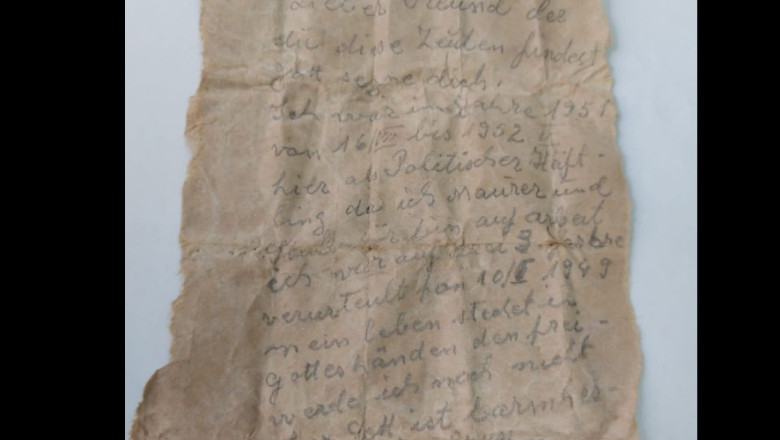 Lieber Freund der
die diese Zeilen findest
gott segne dich.
Ich war im Jahre 1951
von 16/VII bis 1952 V
hier als Politischer Häft-
ling da ich Maurer und
bin auf arbeit
ich war auf drei 3 Jahre
verurteult von 10/I 1949
mein leben stehet in
gottes händen den frei-
werde ich noch nicht
Gott ist barmher-